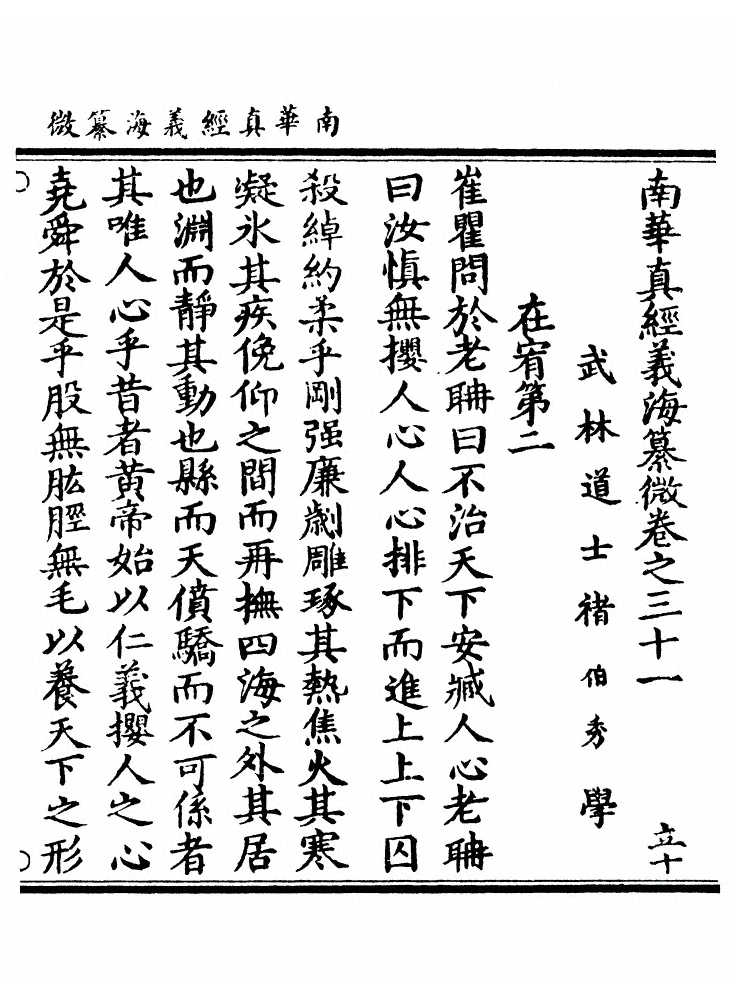 南華真經義海纂微
南華真經義海纂微卷之三十一
立十
武林道士褚伯秀學
在宥第二
崔瞿問於老聃曰不治天下安臧人心老聃
曰汝慎無攖人心人心排下而進上上下囚
殺綽約柔乎剛强廉劌雕琢其熱焦火其寒
凝氷其疾俛仰之間而再撫四海之外其居
也淵而靜其動也縣而天僨驕而不可係者
其唯人心乎昔者黄帝始以仁義攖人之心
堯舜於是乎股無胈脛無毛以養天下之形